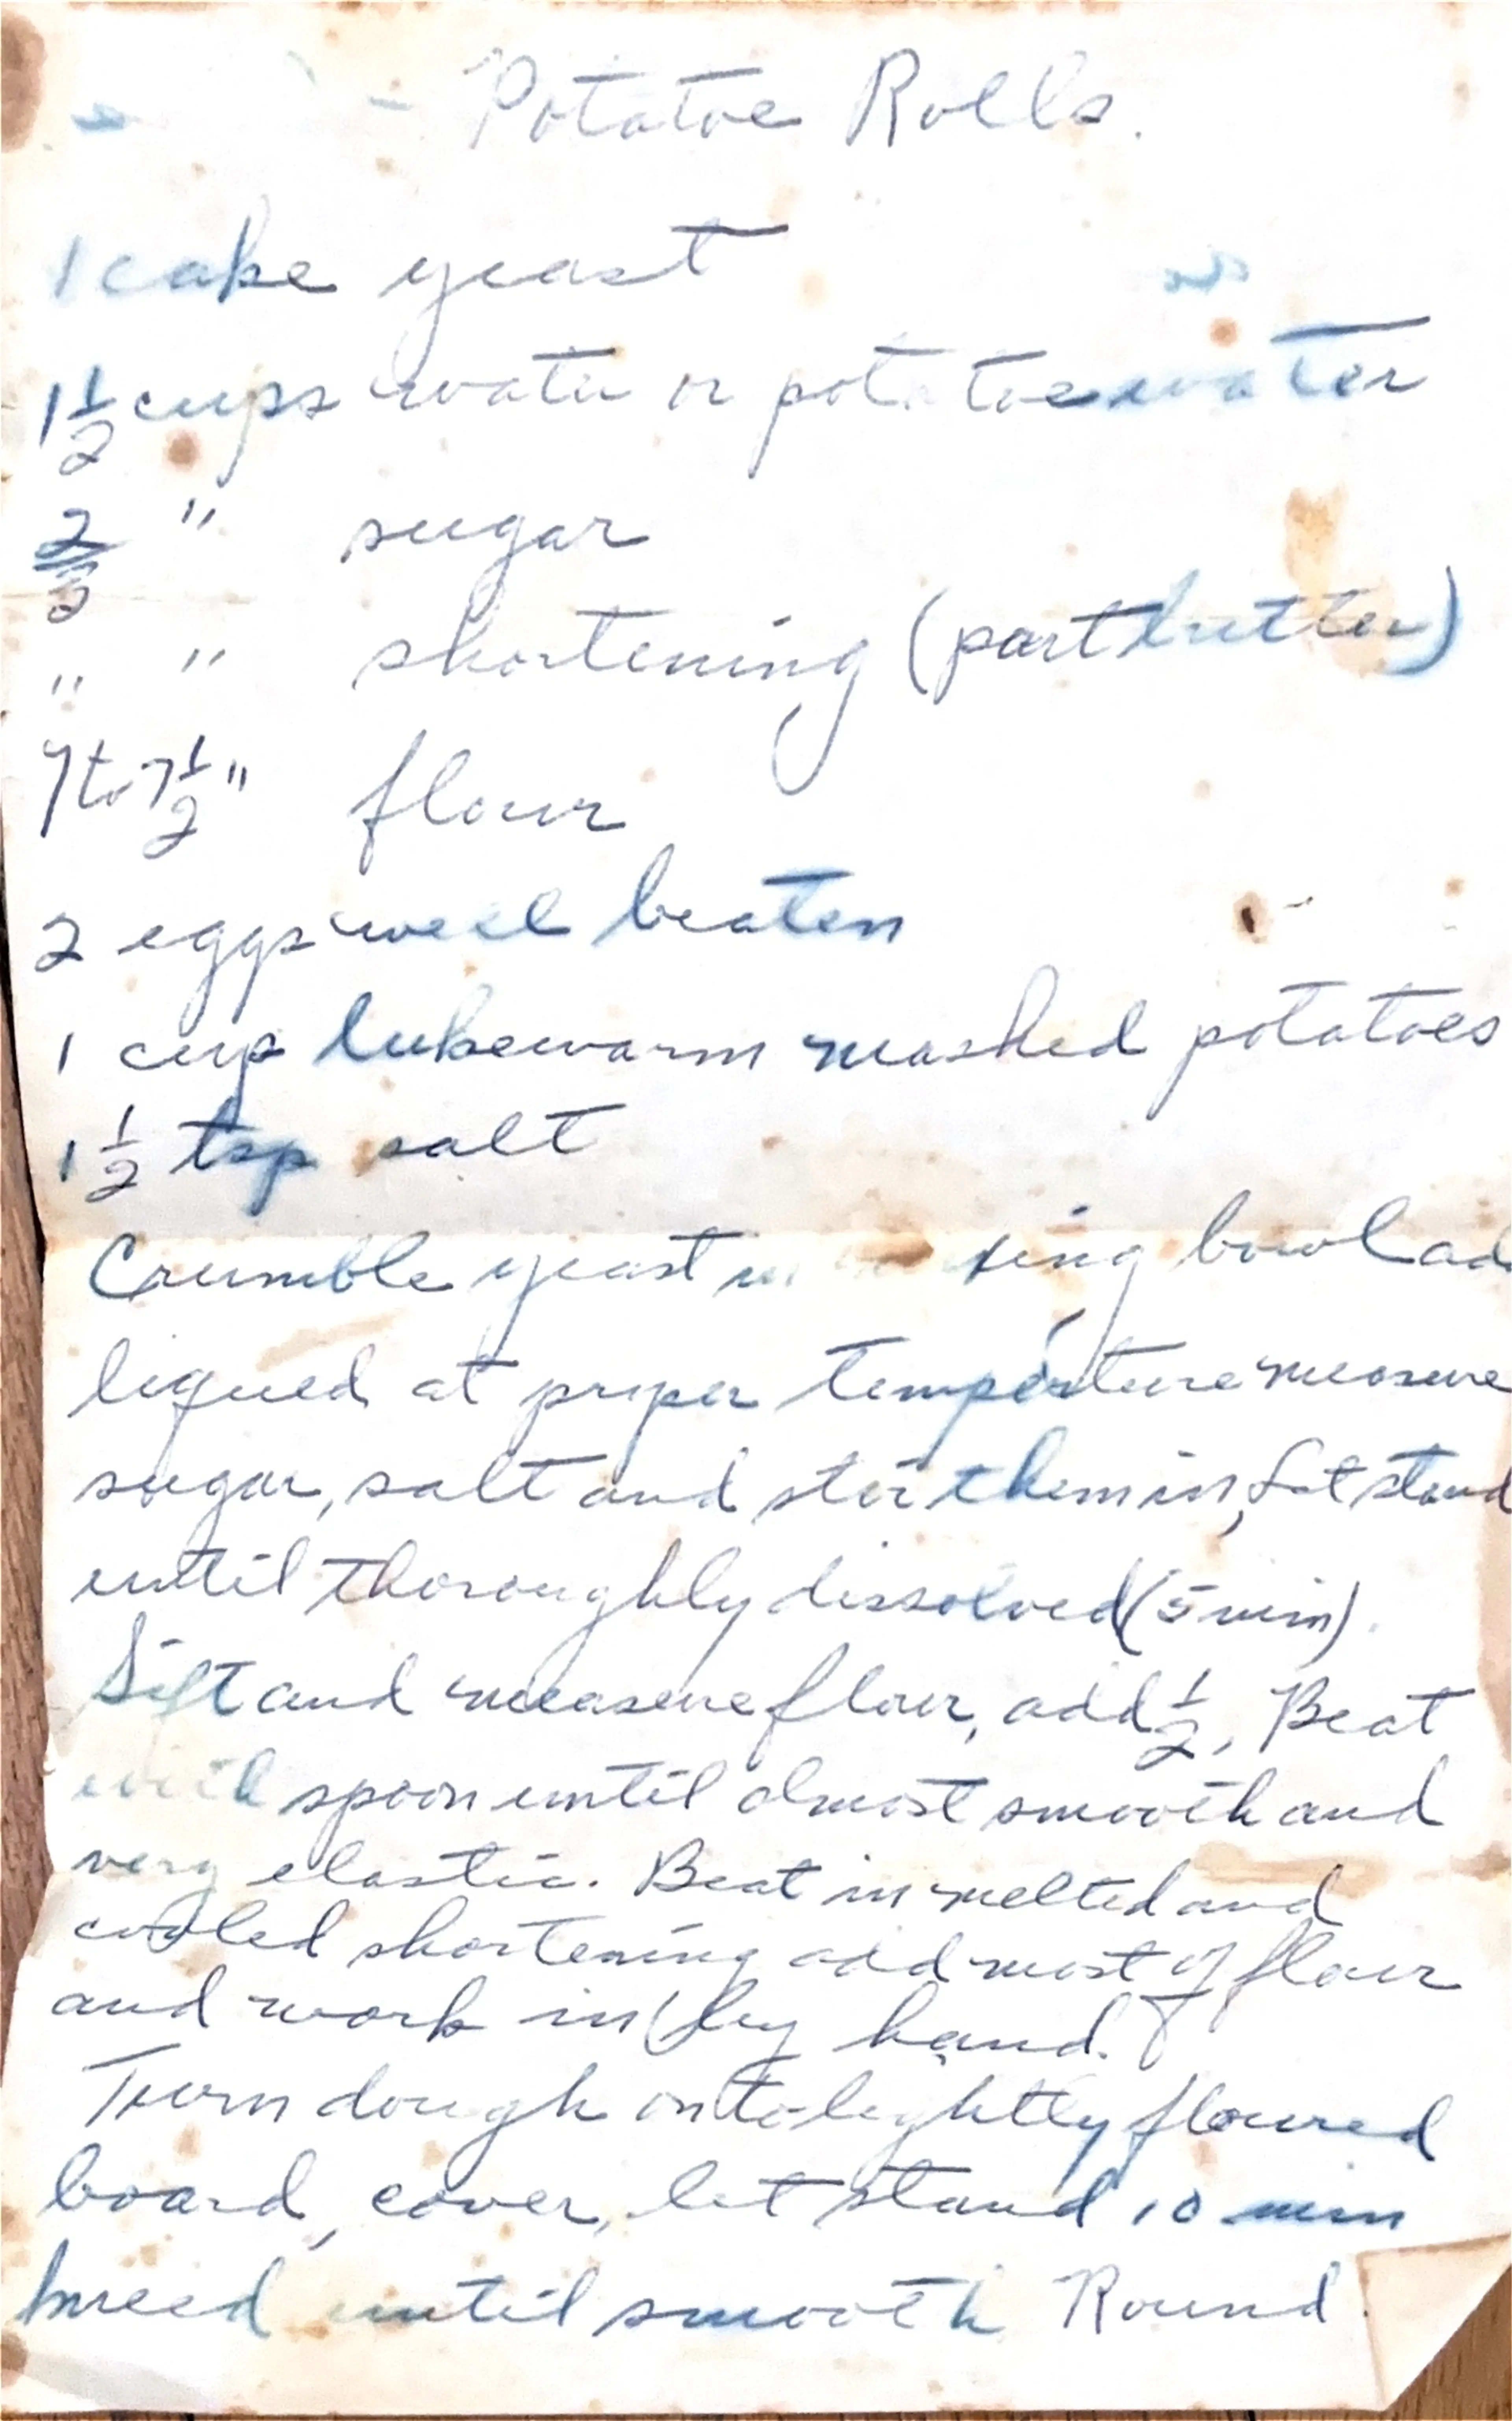 Potatoe Rolls.
1 cake yeast
1 1/2 cups water or potatoe water
2/3 " sugar
" " shortening (part butter)
7 to 7 1/2 " flour
2 eggs well beaten
1 cup lukewarm mashed potatoes
1 1/2 tsp salt
Crumble yeast bowl ad
liqued at proper temperture measure
sugar, salt and stir them in, Let stand
until thoroughly dissolved (5 min).
Sift and measure flour, add 1/2, Beat
with spoon until almost smooth and
very elastic. Beat in melted and
cooled shortening add most of flour
and work in by hand.
Turn dough onto lightly floured
board, cover, let stand 10 min
kneed until smooth Round